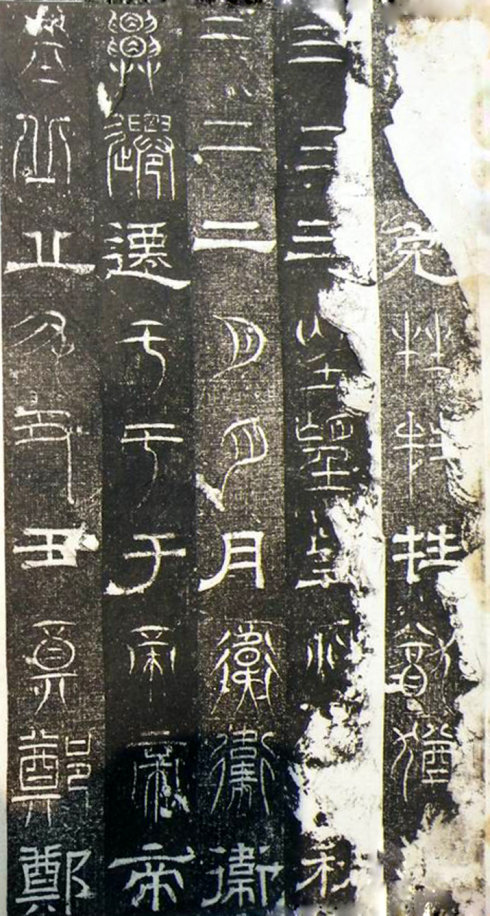 免牲牲牲猶猶
三三三望望望秋秋
二二二月月月衛衛衛
遷遷遷于于于帝帝帝
丘丘丘丑丑丑鄭鄭鄭